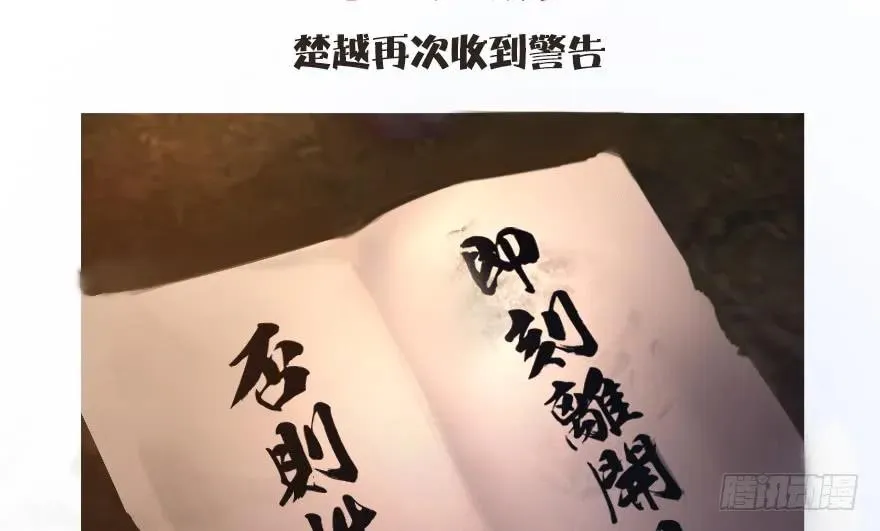 楚越再次收到警告
即刻離開
否則
腾讯动漫